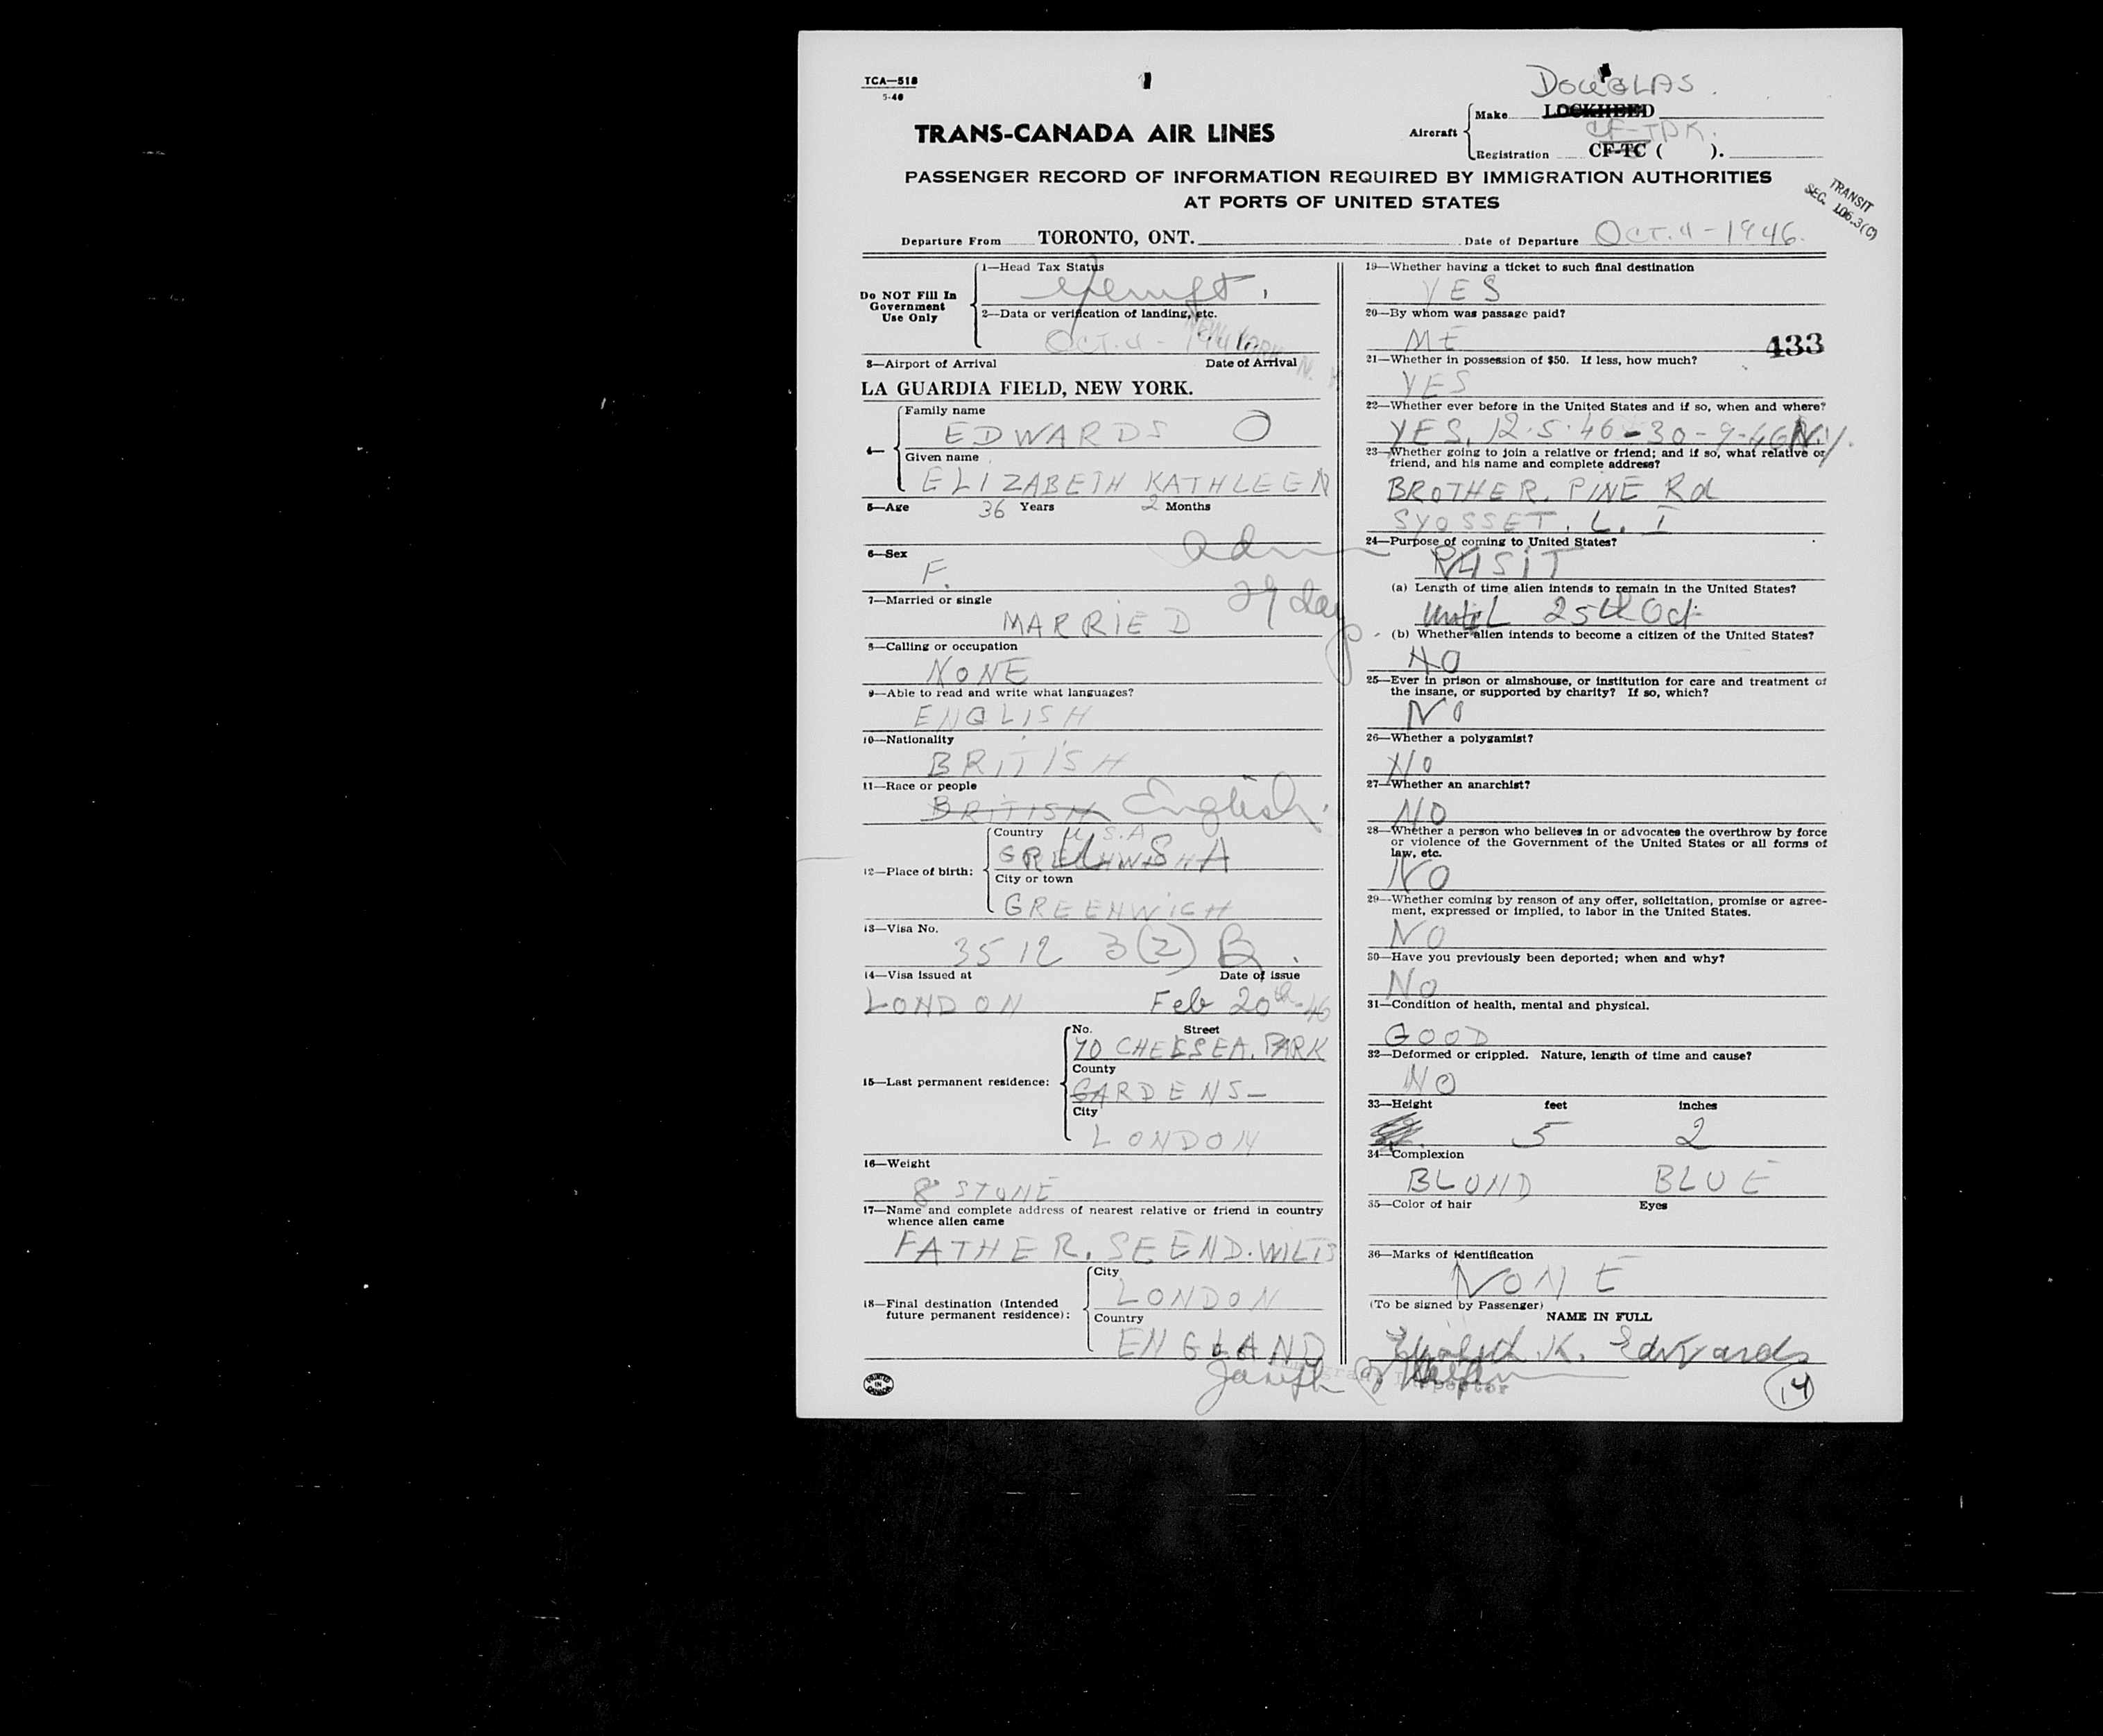 TCA—518
5-46
DOUGLAS.
TRANS-CANADA AIR LINES
Aircraft
Make LOCKHEED
CF-TDK.
Registration CF-TC ( ).
PASSENGER RECORD OF INFORMATION REQUIRED BY IMMIGRATION AUTHORITIES
AT PORTS OF UNITED STATES
TRANSIT
SEC. 106.3(C)
Departure From TORONTO, ONT.
Date of Departure OCT. 4 - 1946.
Do NOT Fill In
Government
Use Only
1—Head Tax Status
exempt.
2—Data or verification of landing, etc.
NEW YORK N. Y.
OCT. 4 - 1946
3—Airport of Arrival Date of Arrival
LA GUARDIA FIELD, NEW YORK.
4—
Family name
EDWARDS O
Given name
ELIZABETH KATHLEEN
5—Age 36 Years 2 Months
adm
6—Sex
F.
29 days
7—Married or single
MARRIED
8—Calling or occupation
NONE
9—Able to read and write what languages?
ENGLISH
10—Nationality
BRITISH
11—Race or people
BRITISH English.
12—Place of birth:
Country U.S.A
GREENWISH U S A
City or town
GREENWICH
13—Visa No.
3512 3(2) B.
14—Visa issued at Date of issue
LONDON Feb 20th-46
15—Last permanent residence:
No. Street
70 CHELSEA. PARK
County
GARDENS—
City
LONDON
16—Weight
8 STONE
17—Name and complete address of nearest relative or friend in country
whence alien came
FATHER. SEEND. WILTS
18—Final destination (Intended
future permanent residence):
City
LONDON
Country
ENGLAND
PRINTED IN CANADA
19—Whether having a ticket to such final destination
YES
20—By whom was passage paid?
ME
433
21—Whether in possession of $50. If less, how much?
YES
22—Whether ever before in the United States and if so, when and where?
YES, 12·5·46 - 30-9-46 N.Y.
23—Whether going to join a relative or friend; and if so, what relative or
friend, and his name and complete address?
BROTHER. PINE Rd
SYOSSET. L. I
24—Purpose of coming to United States?
VISIT
(a) Length of time alien intends to remain in the United States?
Until 25th Oct.
(b) Whether alien intends to become a citizen of the United States?
NO
25—Ever in prison or almshouse, or institution for care and treatment of
the insane, or supported by charity? If so, which?
NO
26—Whether a polygamist?
NO
27—Whether an anarchist?
NO
28—Whether a person who believes in or advocates the overthrow by force
or violence of the Government of the United States or all forms of
law, etc.
NO
29—Whether coming by reason of any offer, solicitation, promise or agree-
ment, expressed or implied, to labor in the United States.
NO
30—Have you previously been deported; when and why?
NO
31—Condition of health, mental and physical.
GOOD
32—Deformed or crippled. Nature, length of time and cause?
NO
33—Height feet inches
5 2
34—Complexion
BLOND BLUE
35—Color of hair Eyes
36—Marks of identification
NONE
(To be signed by Passenger)
NAME IN FULL
Elizabeth K. Edwards
Joseph
Inspector
14